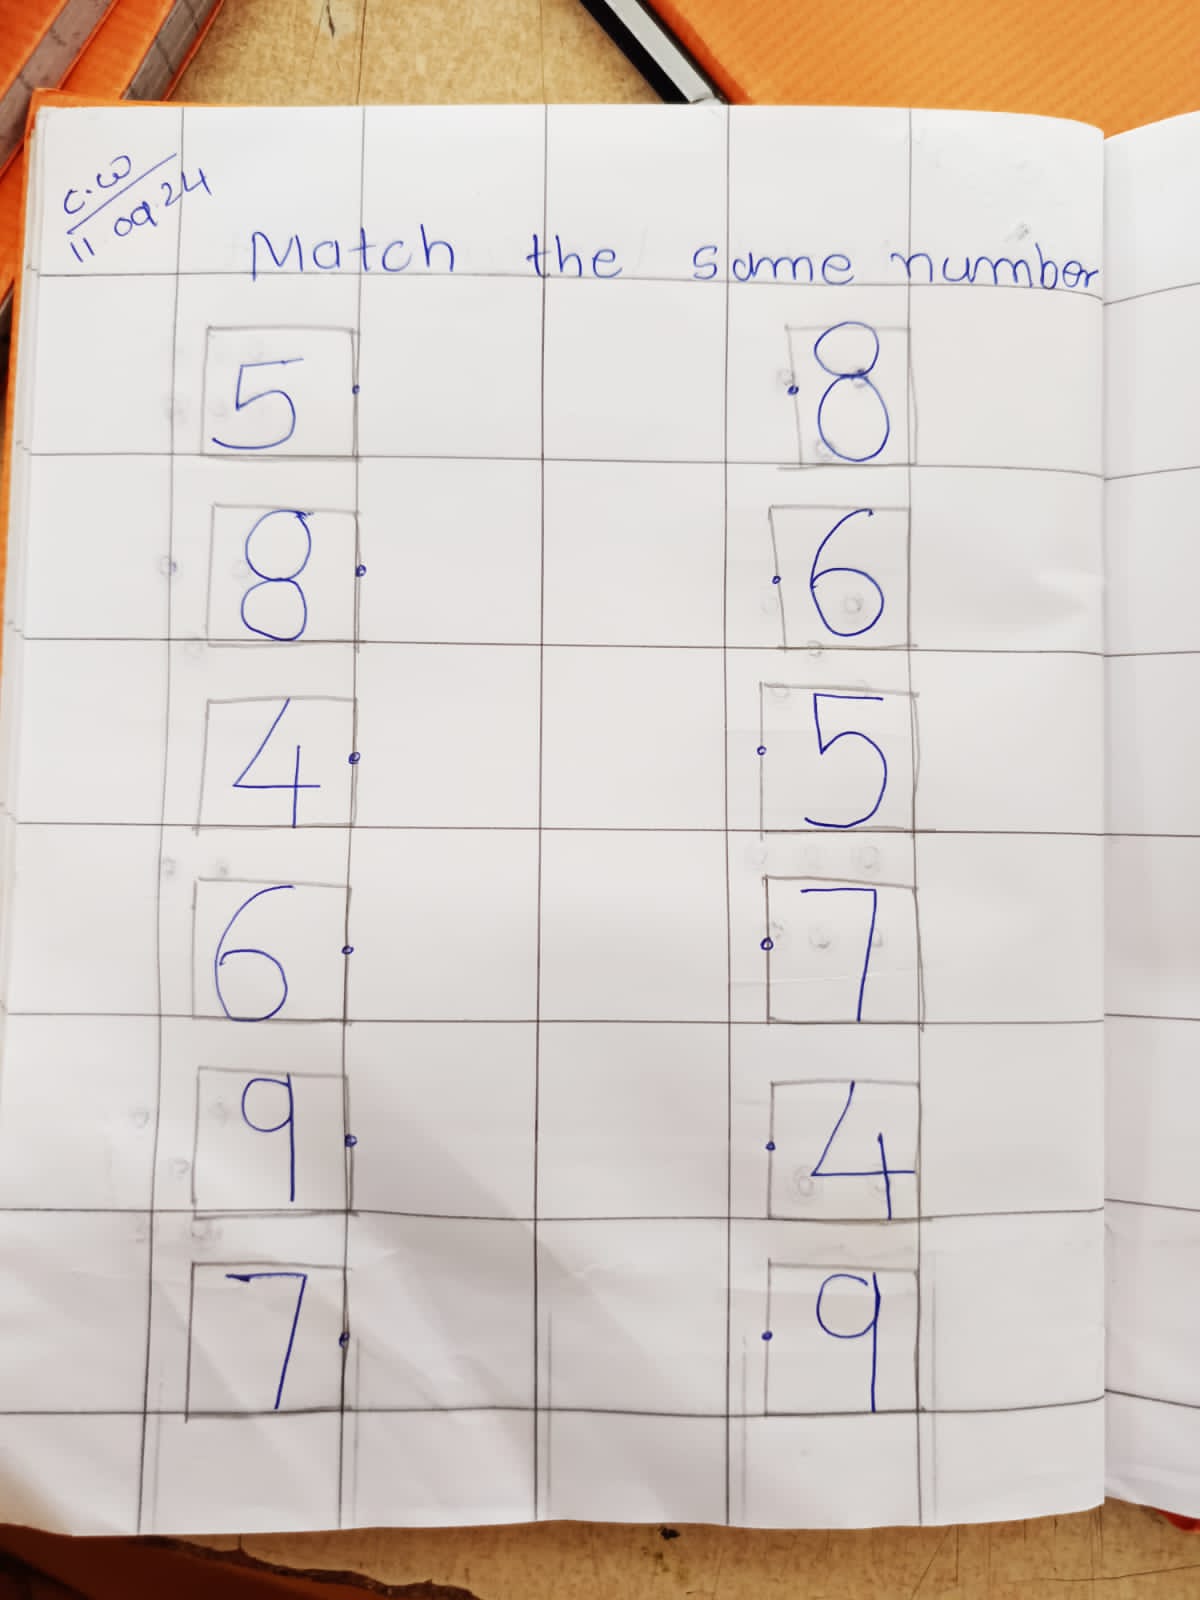 C.W
11.09.24
Match the same number
5 8
8 6
4 5
6 7
9 4
7 9